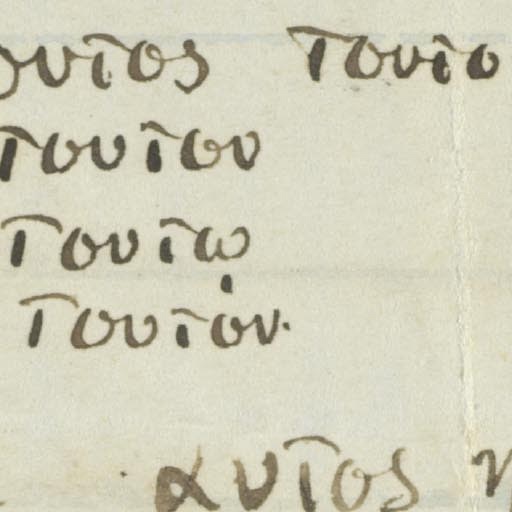 ουτος τουτο
τουτου
τουτῳ
τουτον.
αυτος